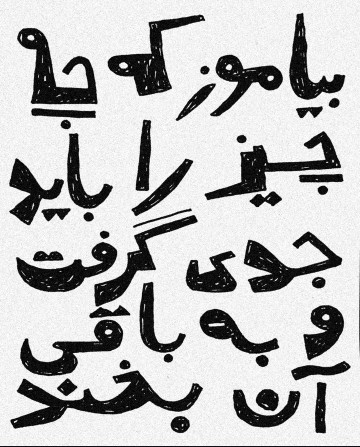 بیاموز که چه
چیز را باید
جدی گرفت
و به باقی
آن بخند